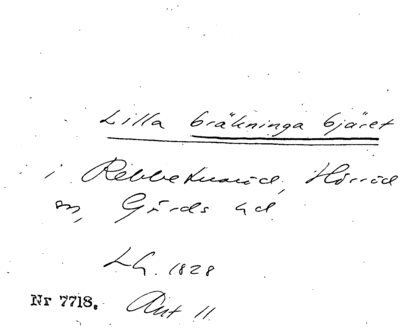 Lilla bräkninga bjäret
i Rebbetuaröd, Hörröd
sn, Gärds hd.
LG. 1828
Nr 7718. Ant 11